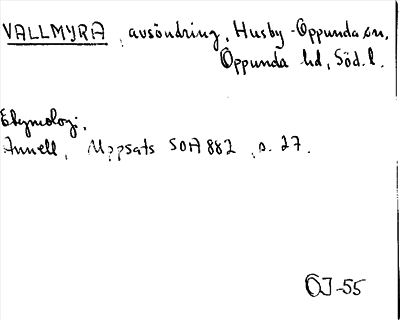 VALLMYRA, avsöndring, Husby-Oppunda sn,
Oppunda hd, Söd. l.
Etymologi.
Annell, Uppsats SOA 882, s. 27.
ÖJ-55